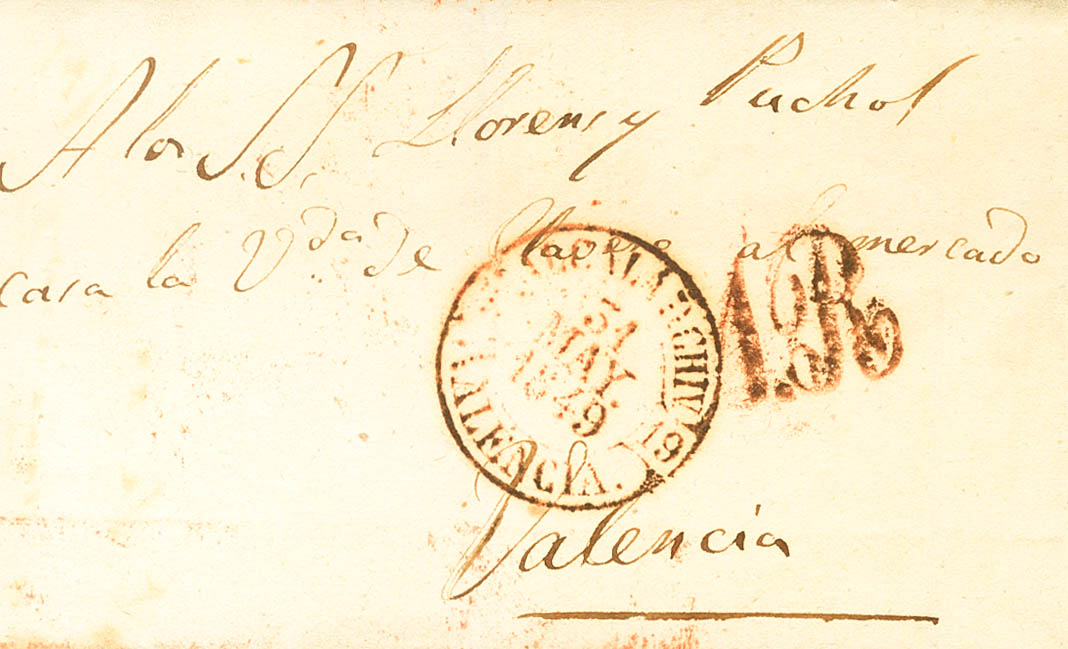 A los S.S. Llorens y Puchol
casa la V.da de al mercado
31
MAY.
1849
VALENCIA.
Valencia